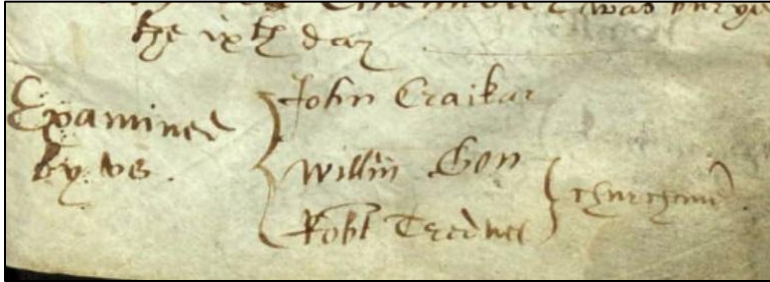 was burye
the ixth day
Examined by vs
John Craikar
Willm Gon
Robt Trednec
churchmen